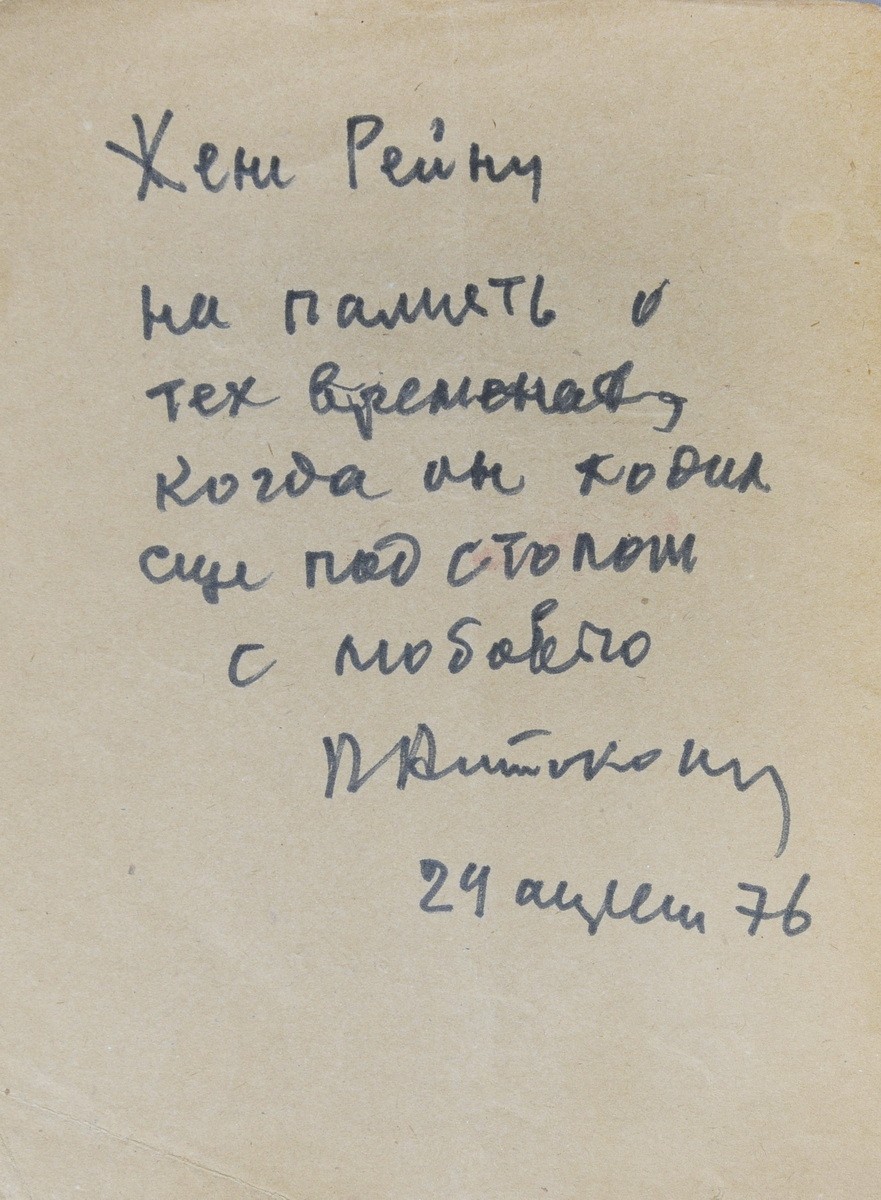 Жене Рейну
на память о
тех временах,
когда он ходил
еще под столом
с любовью
П Антокольский
24 апреля 76